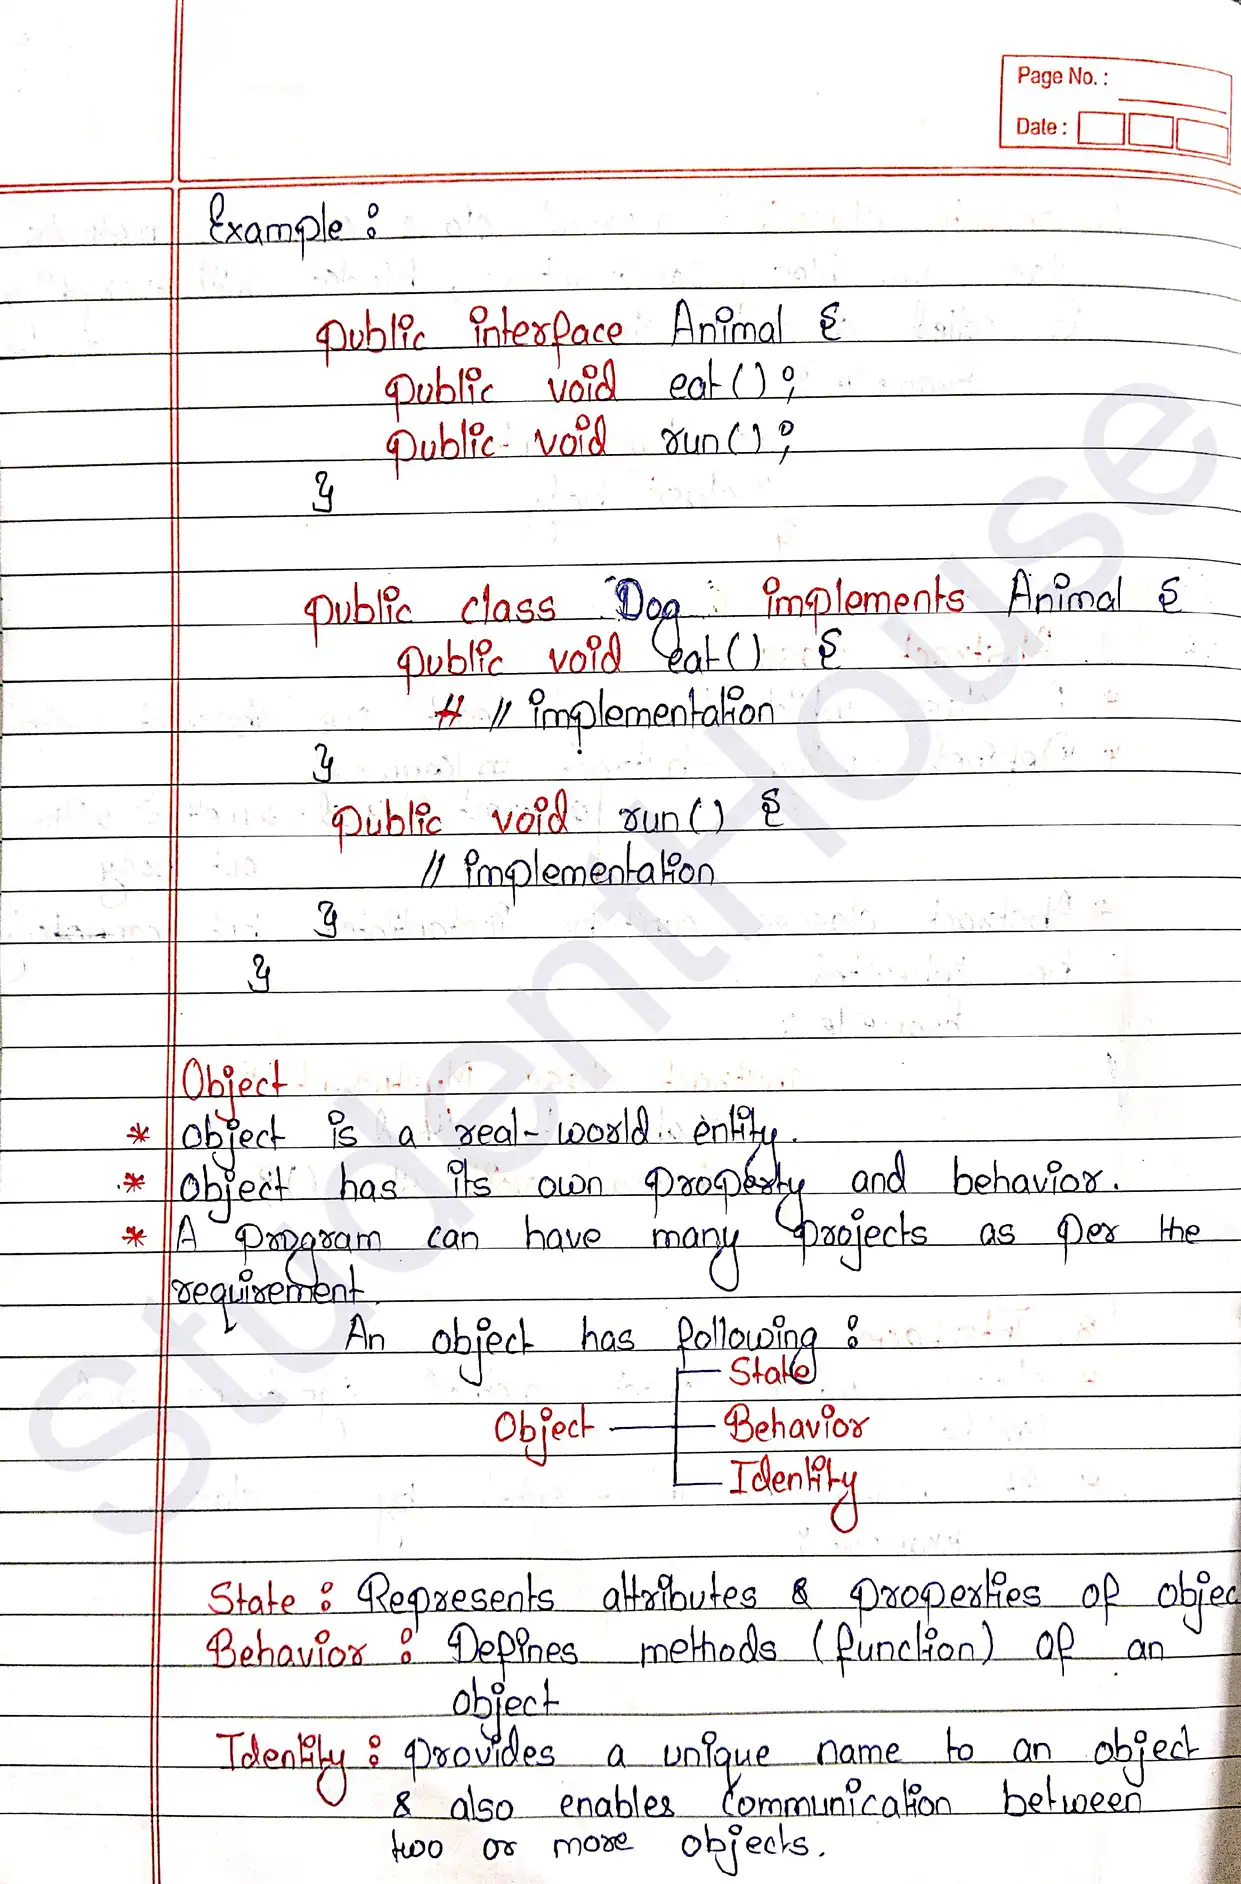 Page No. :
Date :
Example :
public interface Animal {
public void eat();
public void run();
}
public class Dog implements Animal {
public void eat() {
// implementation
}
public void run() {
// implementation
}
}
Object
* object is a real-world entity.
* object has its own property and behavior.
* A program can have many projects as per the
requirement.
An object has following :
State
Object Behavior
Identity
State : Represents attributes & properties of objec
Behavior : Defines methods (function) of an
object
Identity : provides a unique name to an object
& also enables communication between
two or more objects.
StudentHouse